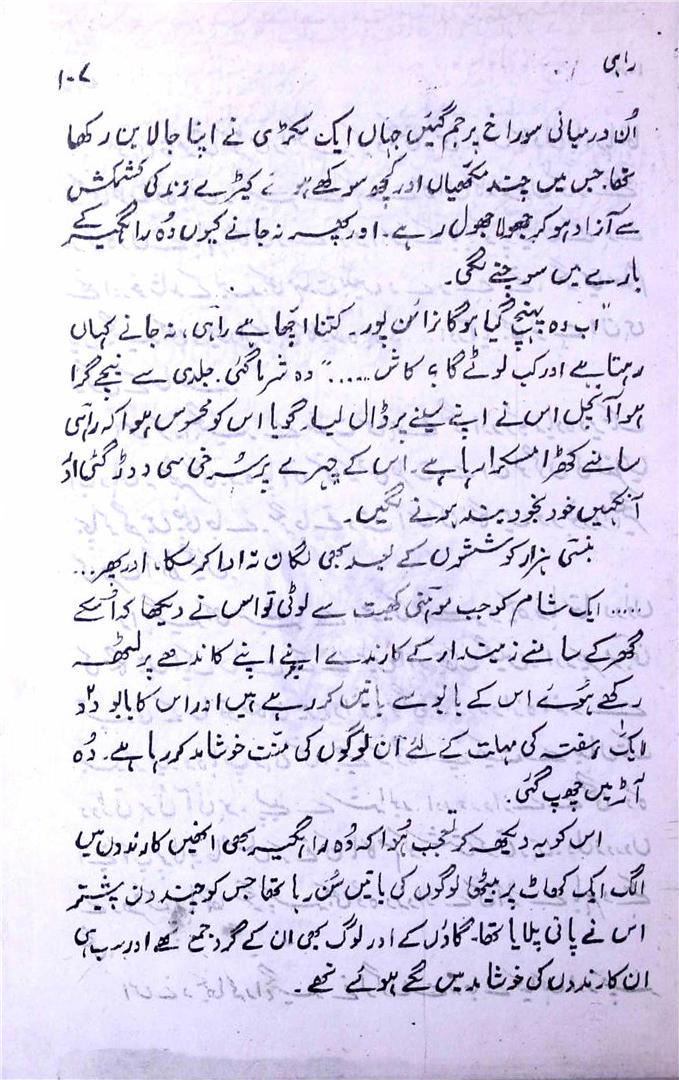 راہی
۱۰۷
اُن درمیانی سوراخ پر جم گئیں جہاں ایک مکڑی نے اپنا جالا بن رکھا
تھا۔ جس میں چند مکھیاں اور کچھ سوکھے ہوئے کیڑے زندگی کی کشمکش
سے آزاد ہو کر جھولا جھول رہے۔ اور پھر نہ جانے کیوں وُہ راہگیر کے
بارے میں سوچنے لگی۔
"اب وہ پہنچ گیا ہوگا نرائن پور۔ کتنا اچھا ہے راہی، نہ جانے کہاں
رہتا ہے اور کب لوٹے گا؟ کاش ......" وہ شرما گئی۔ جلدی سے نیچے گرا
ہوا آنچل اس نے اپنے سینے پر ڈال لیا۔ گویا اس کو محسوس ہوا کہ راہی
سامنے کھڑا مسکرا رہا ہے۔ اس کے چہرے پر سُرخی سی دوڑ گئی اور
آنکھیں خود بخود بند ہونے لگیں۔
بنسی ہزار کوششوں کے بعد بھی لگان نہ ادا کر سکا، اور پھر ...
..... ایک شام کو جب موہنی کھیت سے لوٹی تو اس نے دیکھا کہ اُسکے
گھر کے سامنے زمیندار کے کارندے اپنے اپنے کاندھے پر لٹھ
رکھے ہوئے اس کے بابو سے باتیں کر رہے ہیں اور اس کا بابو دو
ایک ہفتہ کی مہلت کے لئے اُن لوگوں کی منّت خوشامد کر رہا ہے۔ وُہ
آڑ میں چھپ گئی۔
اس کو یہ دیکھ کر تعجب ہُوا کہ وُہ راہگیر بھی انھیں کارندوں میں
الگ ایک کھاٹ پر بیٹھا لوگوں کی باتیں سُن رہا تھا جس کو چند دن پیشتر
اس نے پانی پلایا تھا۔ گاؤں کے اور لوگ بھی ان کے گرد جمع تھے اور سب ہی
ان کارندوں کی خوشامد میں لگے ہوئے تھے۔